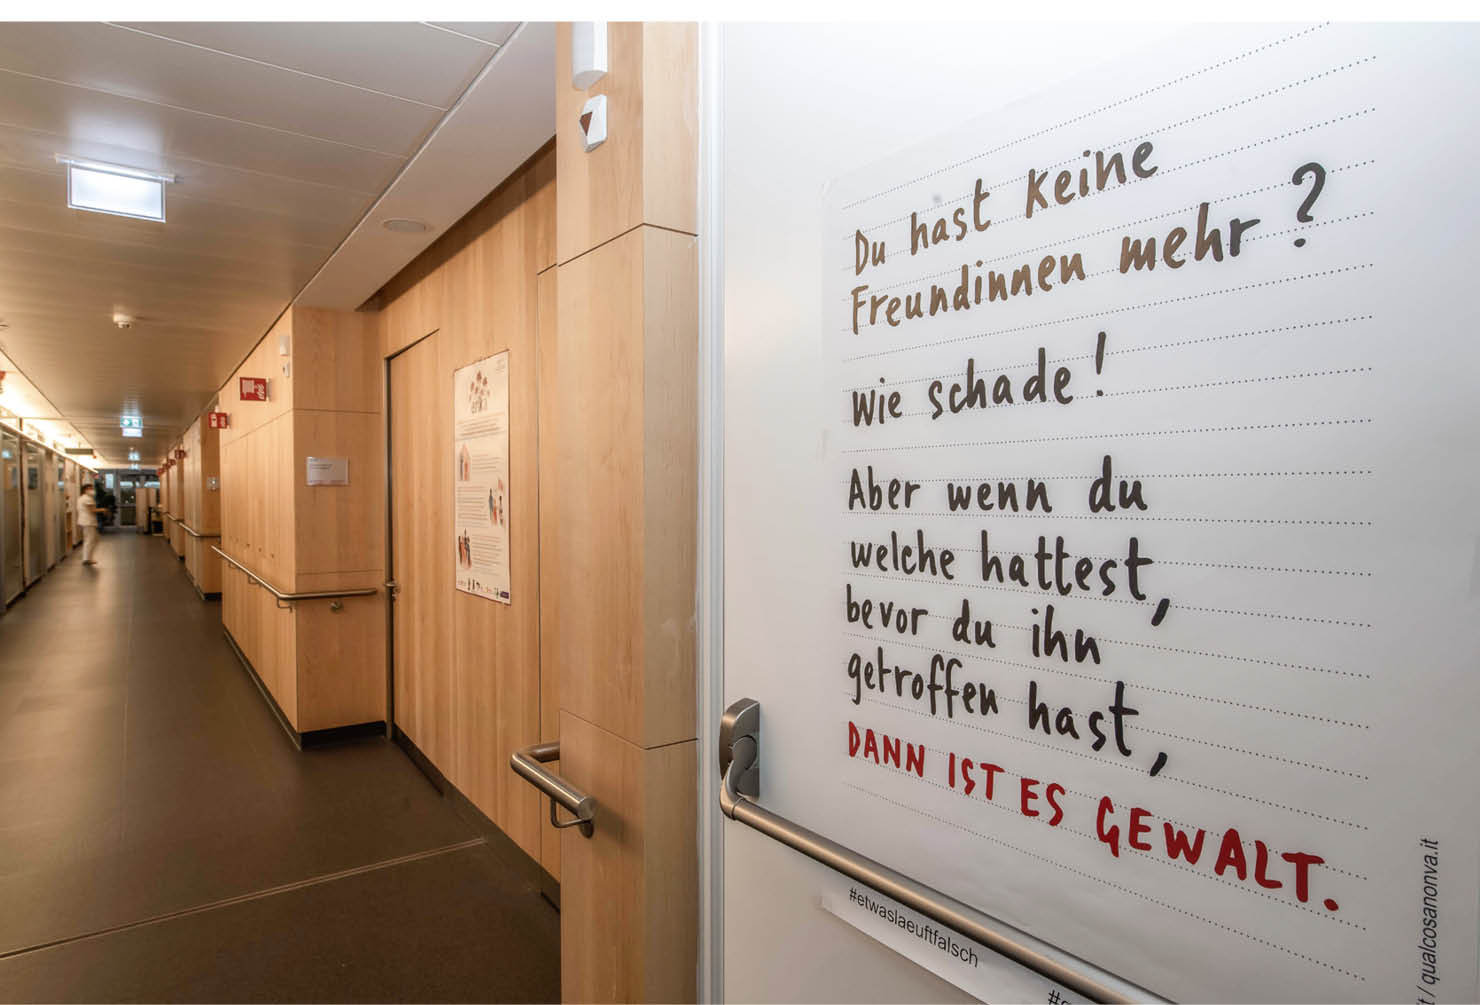 Du hast keine
Freundinnen mehr?
Wie schade!
Aber wenn du
welche hattest,
bevor du ihn
getroffen hast,
DANN IST ES GEWALT.
#etwaslaeuftfalsch
/ qualcosanonva.it